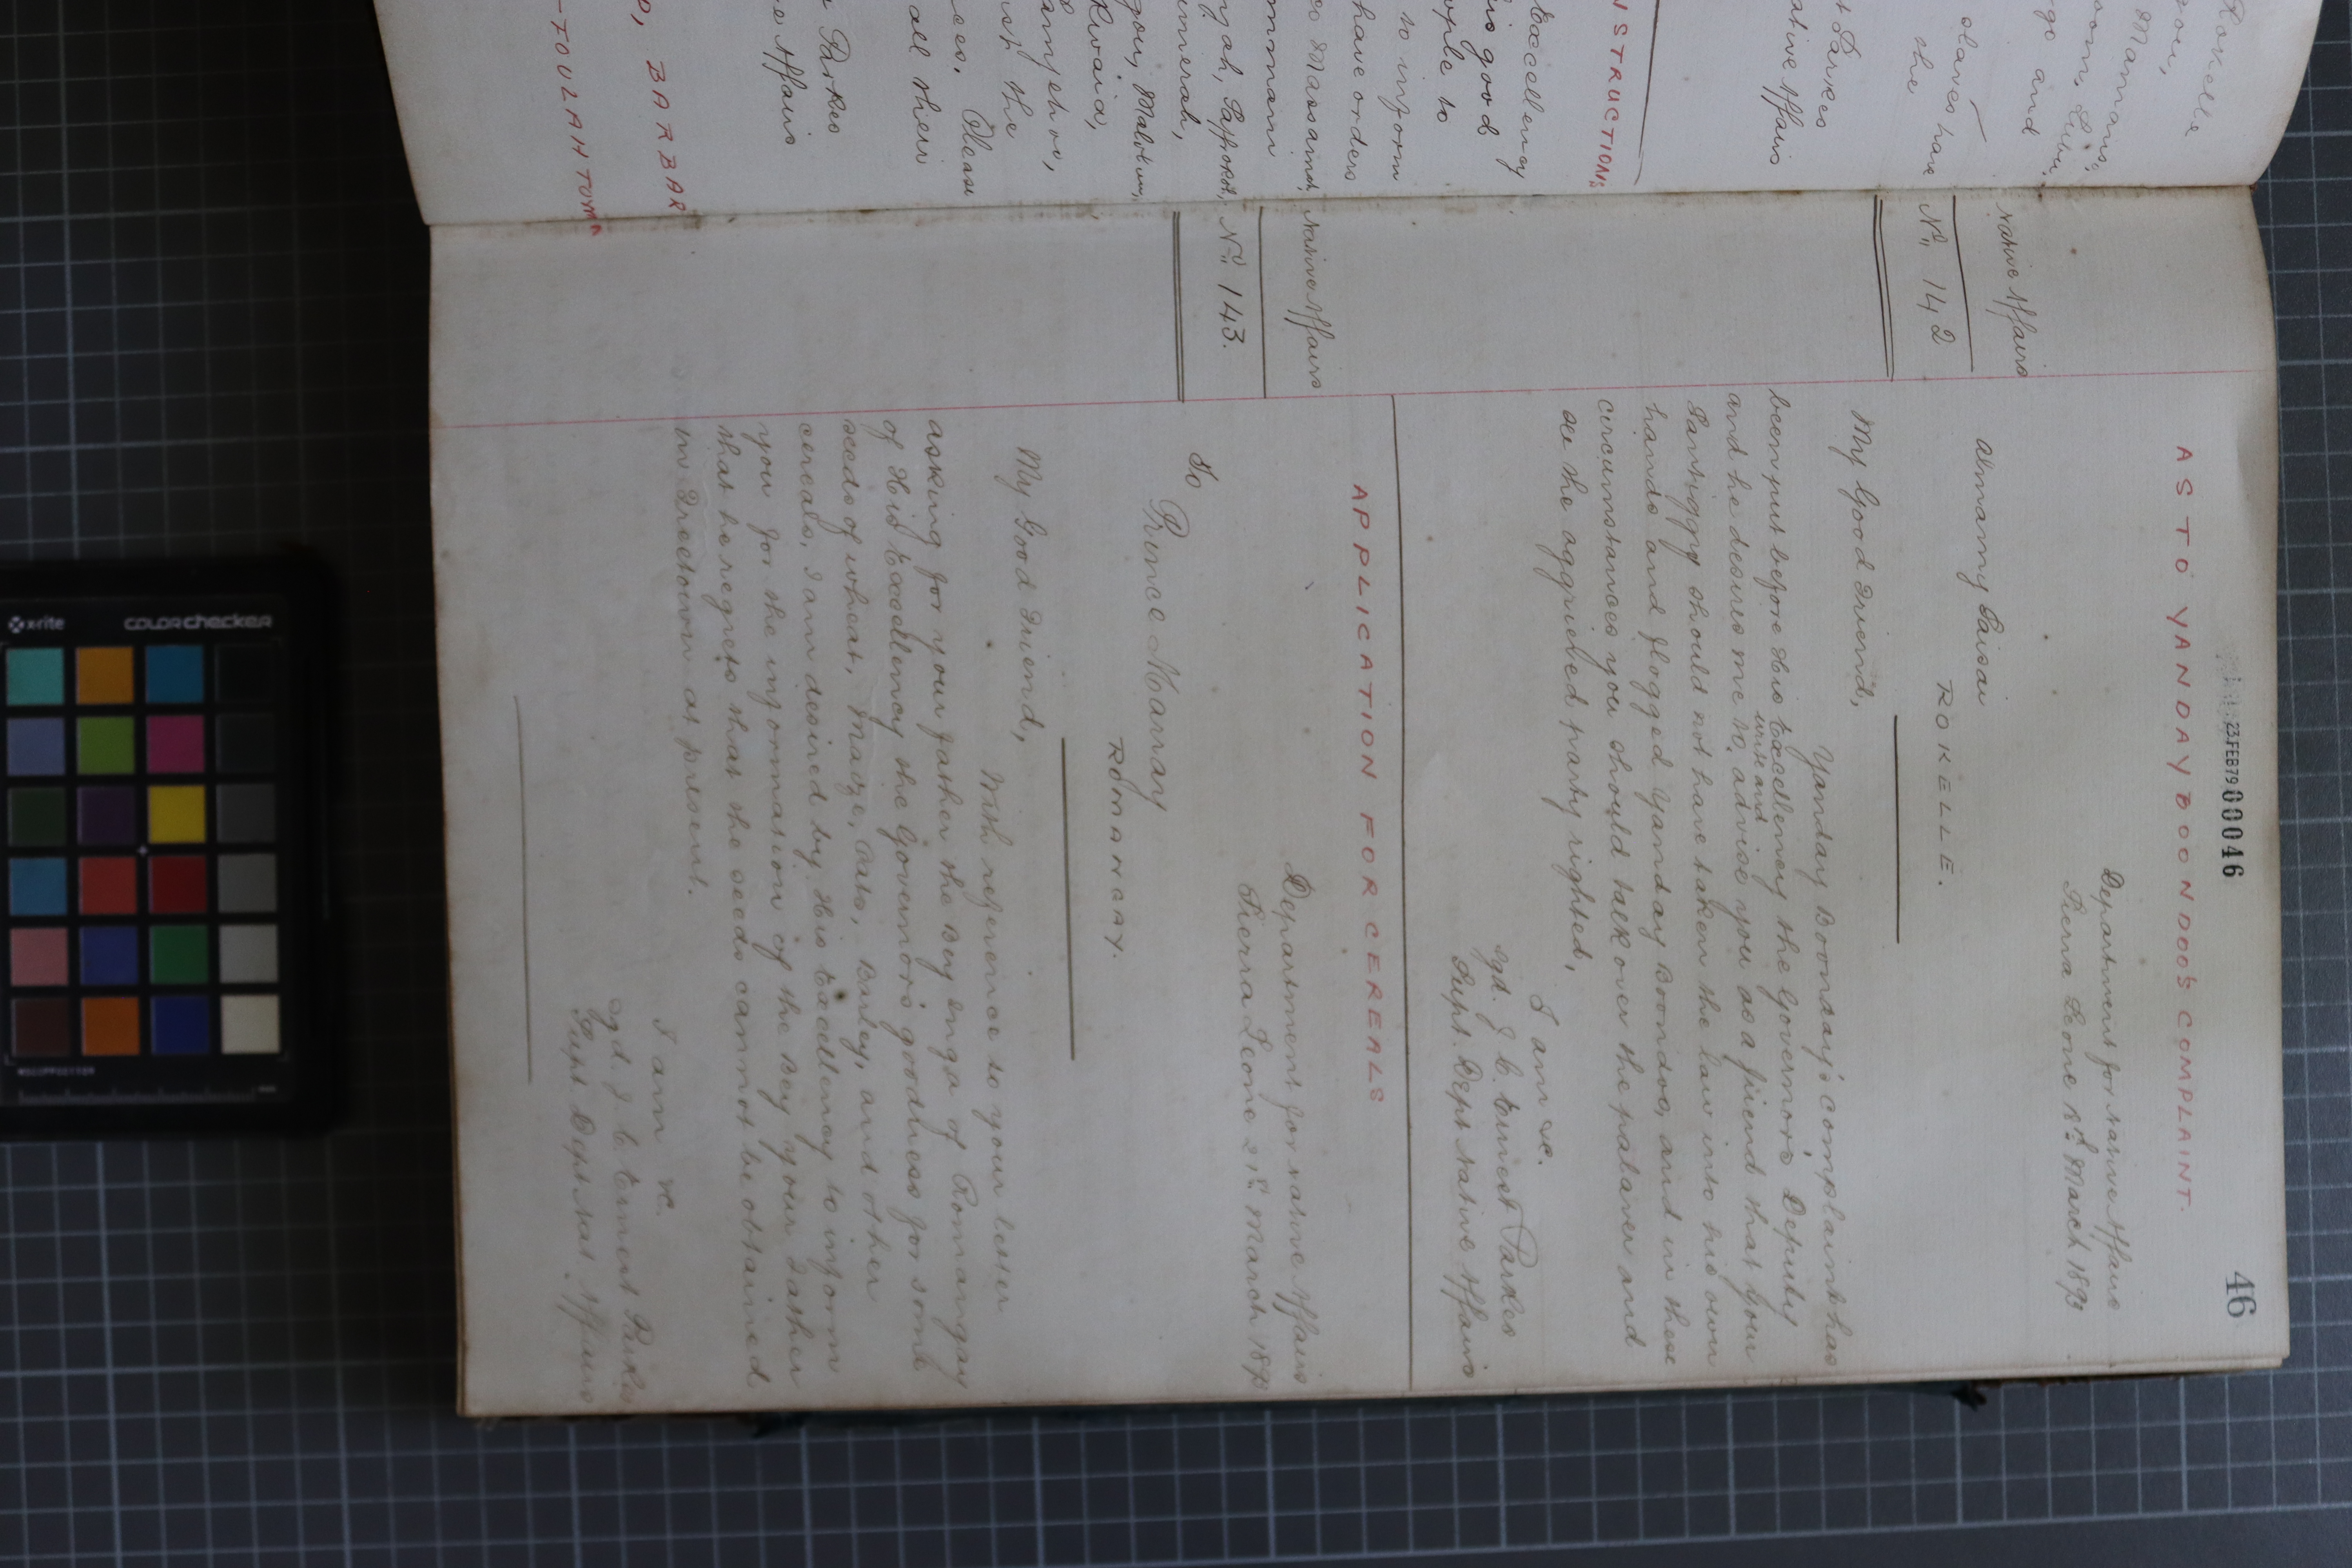 46
23 FEB 79 00046
AS TO YANDAY BOONDOO'S COMPLAINT.
Department for Native Affairs
Sierra Leone 8th March 1893
Native Affairs
No. 142
Almamy Saisai
ROKELLE.
My Good Friend,
Yanday Boonday's complaint has
been put before His Excellency the Governor's Deputy
and he desires me to write and advise you as a friend that your
Santiggy should not have taken the law into his own
hands and flogged Yanday Boondoo, and in these
circumstances you should talk over the palaver and
see the aggrieved party righted,
I am &c.
sgd. J. C. Ernest Parkes
Supt. Dept Native Affairs
APPLICATION FOR CEREALS
Department for Native Affairs
Sierra Leone 21st March 1893
Native Affairs
No. 143.
To
Prince Marray
ROMANGAY.
My Good Friend,
With reference to your letter
asking for your father the Bey Inga of Romangay
of His Excellency the Governor's goodness for some
seeds of wheat, Maize, Oats, Barley, and other
cereals, I am desired by His Excellency to inform
you for the information of the Bey your Father
that he regrets that the seeds cannot be obtained
in Freetown at present.
I am &c.
sgd. J. C. Ernest Parkes
Supt Dept Nat. Affairs
Rokelle
go and
slaves have
the
Parkes
ative Affairs
NSTRUCTIONS
Excellency
is good
ople to
to inform
have orders
Massama,
Malokun,
Kwaia,
the
Please
all their
Parkes
e Affairs
BARBAR
TOULAHTOYA
x-rite
colorchecker